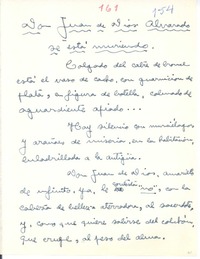 161 154
Don Juan de Dios Alvarado
se está muriendo.
Colgado del catre de bronce
está el vaso de cacho, con guarnición de
plata, en figura de botella, colmado de
aguardiente apiado...
Hay silencio con murciélagos
y arañas de miseria, en la habitación,
enladrillada a la antigua.
Don Juan de Dios, amarillo
de infinito, ya, le confió "no", con la
cabeza de belleza aterradora, al sacerdote,
y, como que quiere salirse del colchón,
que cruje, al peso del alma.